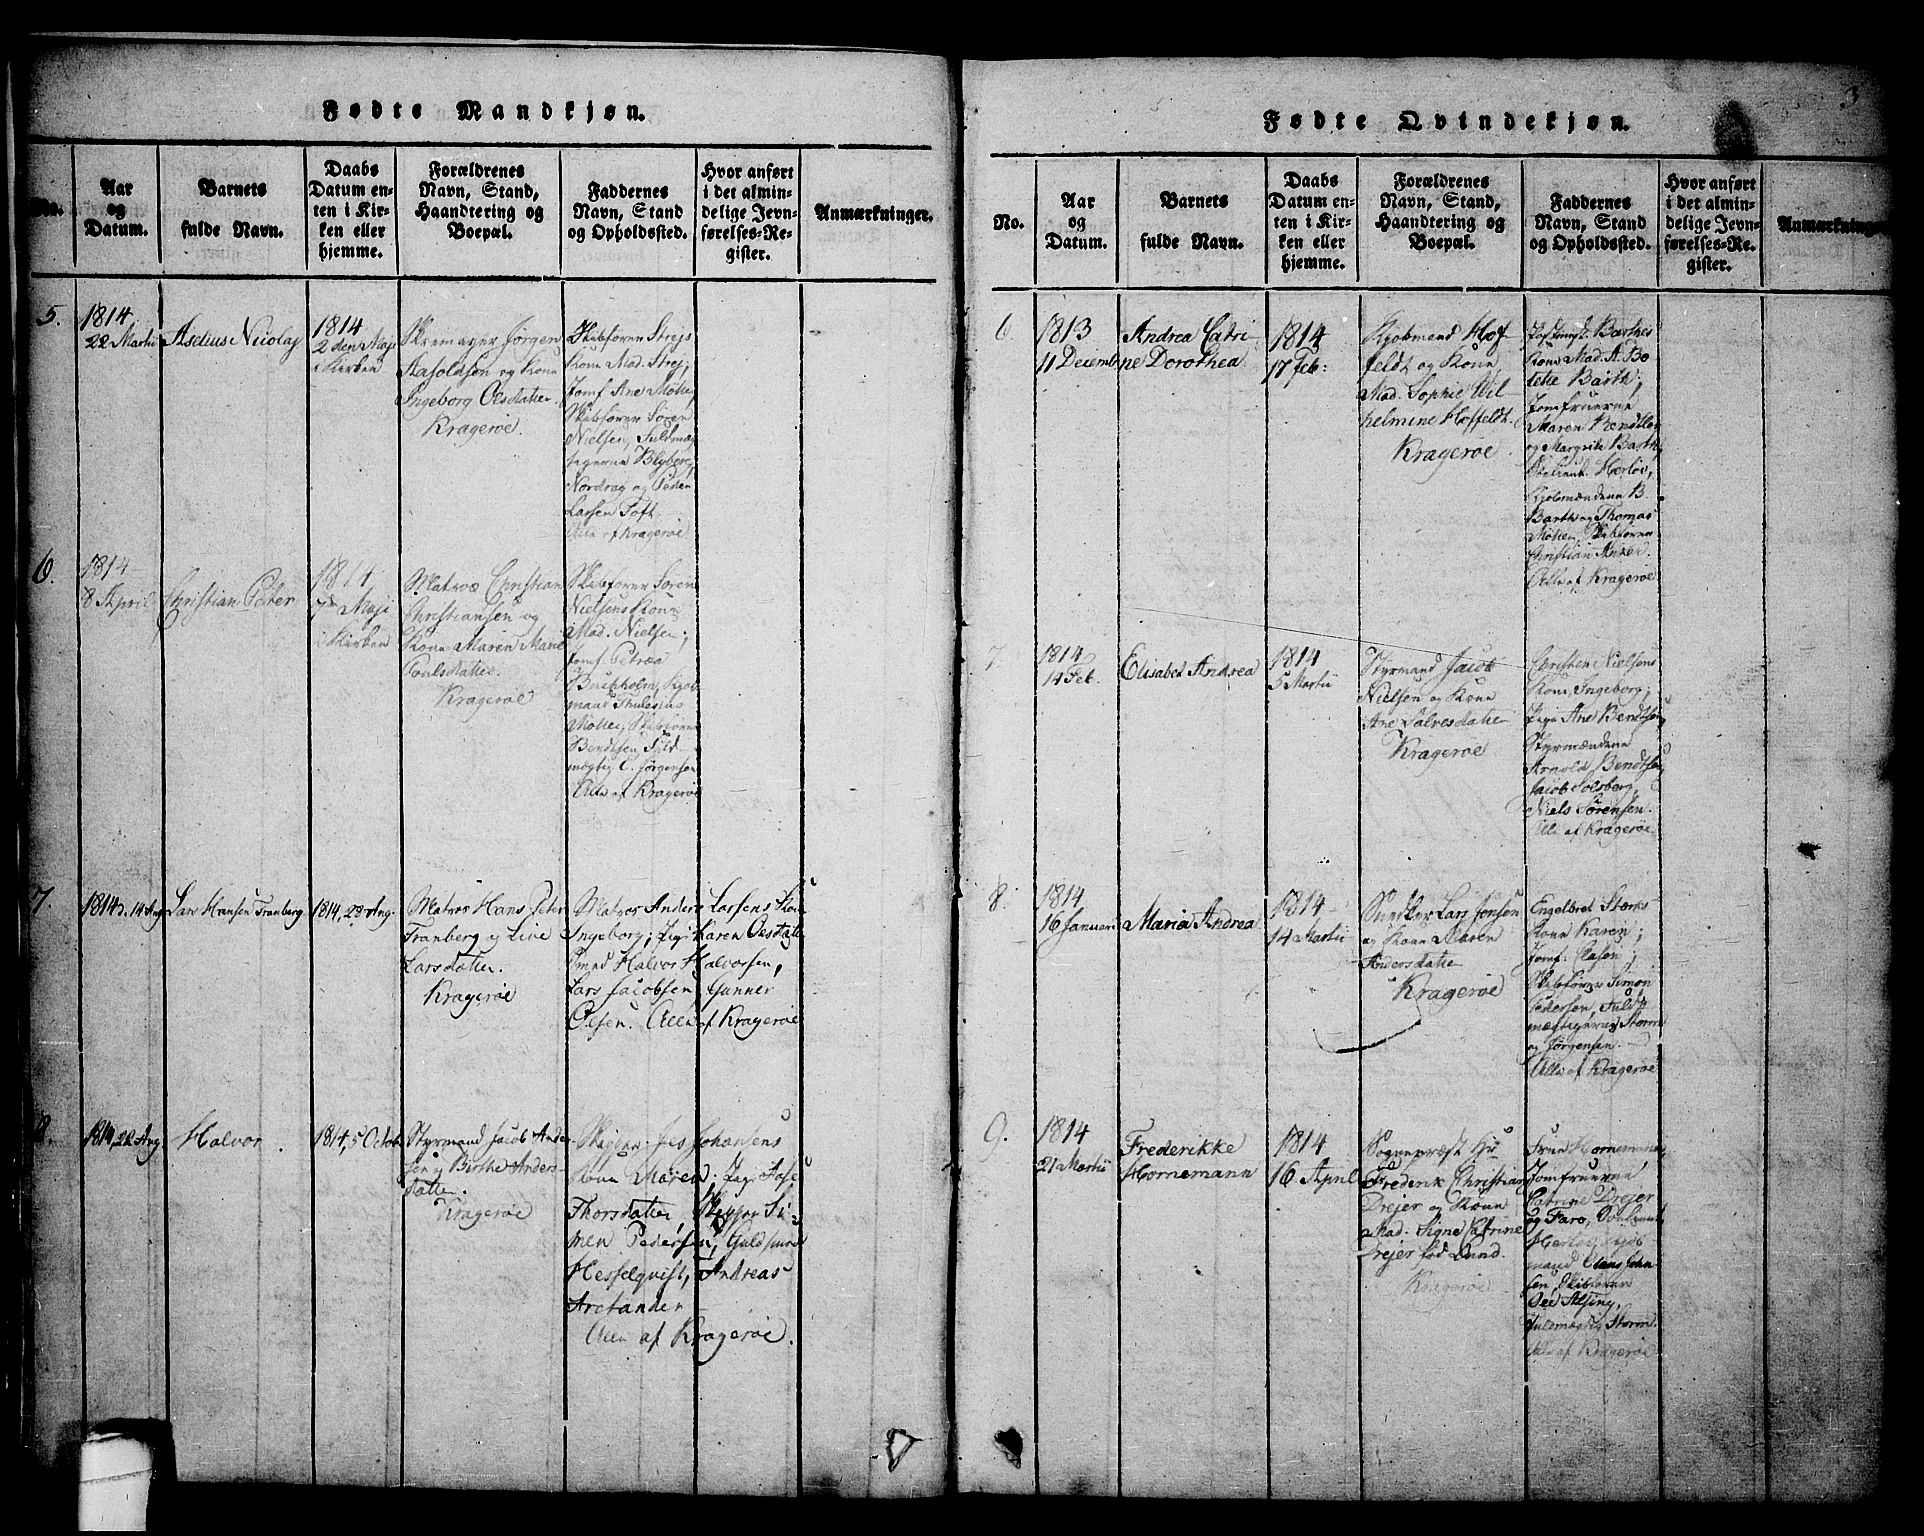 Fødte Mandkjøn.
No.
Aar
og
Datum.
Barnets
fulde Navn.
Daabs
Datum en-
ten i Kir-
ken eller
hjemme.
Forældrenes
Navn, Stand,
Haandtering og
Boepæl.
Faddernes
Navn, Stand
og Opholdssted.
Hvor anført
i det almin-
delige Jevn-
førelses-Re-
gister.
Anmærkninger.
5.
1814
22 Martii
Aselius Nicolay
1814
2den Maji
i Kirken
Jørgen
Aasoldsøn og Kone
Ingeborg Olsdatter.
Kragerøe.
Skibsfører Strejs
Kone Mad. Strej;
Jomf. Ane Møller,
Skibsfører Søren
Nielsen, Fuldmæ-
tigerne Blyberg,
Nordrag og Peder
Larsen Toft.
Alle af Kragerøe
6.
1814
8 April
Christian Peter
1814
7 Maji
i Kirken
Matros Christian
Christiansen og
Kone Maren Marie
Poulsdatter
Kragerøe
Skibsfører Søren
Nielsens Kone
Mad. Nielsen;
Jomf. Petræa
Buchholm, Kjøb-
mand Thulesius
Møller, Skibsfører
Bendtsen, Fuld-
mægtig C. Jørgensen
Alle af Kragerøe
7.
1814, 14 Aug
Lars Hansen Tranberg
1814, 28 Aug.
Matros Hans Peter
Tranberg og Live
Larsdatter.
Kragerøe
Matros Anders Larsens Kone
Ingeborg; Pige Karen Olsdatter
Smed Halvor Halvorsen,
Lars Jacobsen, Gunner
Olsen. Alle af Kragerøe
8.
1814, 22 Aug
Halvor.
1814, 5 Octob.
Styrmand Jacob Ander-
sen og Birthe Anders-
datter.
Kragerøe
Skipper Jes Johansens
Kone Maren; Pige
Thorsdatter Skipper Si-
men Pedersen, Guldsmed
Hesselqvist, Andreas
Arctander
Alle af Kragerøe.
3
Fødte Qvindekjøn.
No.
Aar
og
Datum.
Barnets
fulde Navn.
Daabs
Datum en-
ten i Kir-
ken eller
hjemme.
Forældrenes
Navn, Stand,
Haandtering og
Boepæl.
Faddernes
Navn, Stand
og Opholdssted.
Hvor anført
i det almin-
delige Jevn-
førelses-Re-
gister.
Anmærkninge
6
1813
11 Decemb
Andrea Catri-
ne Dorothea
1814
17 Feb:
Kjøbmand Hof-
feldt og Kone
Mad. Sophie Wil-
helmine Hoffeldt.
Kragerøe
Barthes
Kone Mad. A. Bo-
lette Barth;
Jomfruerne
Maren Bendtsen
og Margrite Barth,
Herløv,
Kjøbmændene B.
Barth og Thomas
Møller, Skibsfører
Christian Anker.
Alle af Kragerøe
7.
1814
14 Feb.
Elisabet Andrea
1814
5 Martii
Styrmand Jacob
Nielsen og Kone
Ane Salvesdatter
Kragerøe
Christen Nielsens
Kone Ingeborg;
Pige Ane Bendtsen,
Styrmændene
Arnold Bendtsen,
Jacob Solberg,
Niels Sørensen.
Alle af Kragerøe
8.
1814
16 Januari
Maria Andrea
1814
14 Martii
Snedker Lars Jonsen
og Kone Maren
Andersdatter
Kragerøe
Engelbret Stærks
Kone Karen;
Jomf. Clasen;
Skibsfører Simon
Pedersen, Fuld-
mægtigerne Storm
og Jørgensen.
Alle af Kragerøe
9.
1814
21 Martii
Frederikke
Hornemann
1814
16 April
Sognepræst Hr.
Frederik Christian
Drejer og Kone
Mad. Signe Catrine
Drejer fød Lund.
Kragerøe
Frue Hornemann,
Jomfruerne
Catrine Drejer
og Faro,
Herløv, Kjøb-
mand Claus John-
sen, Skibsfører
Ole Alsing,
Fuldmægtig Storm.
Alle af Kragerøe